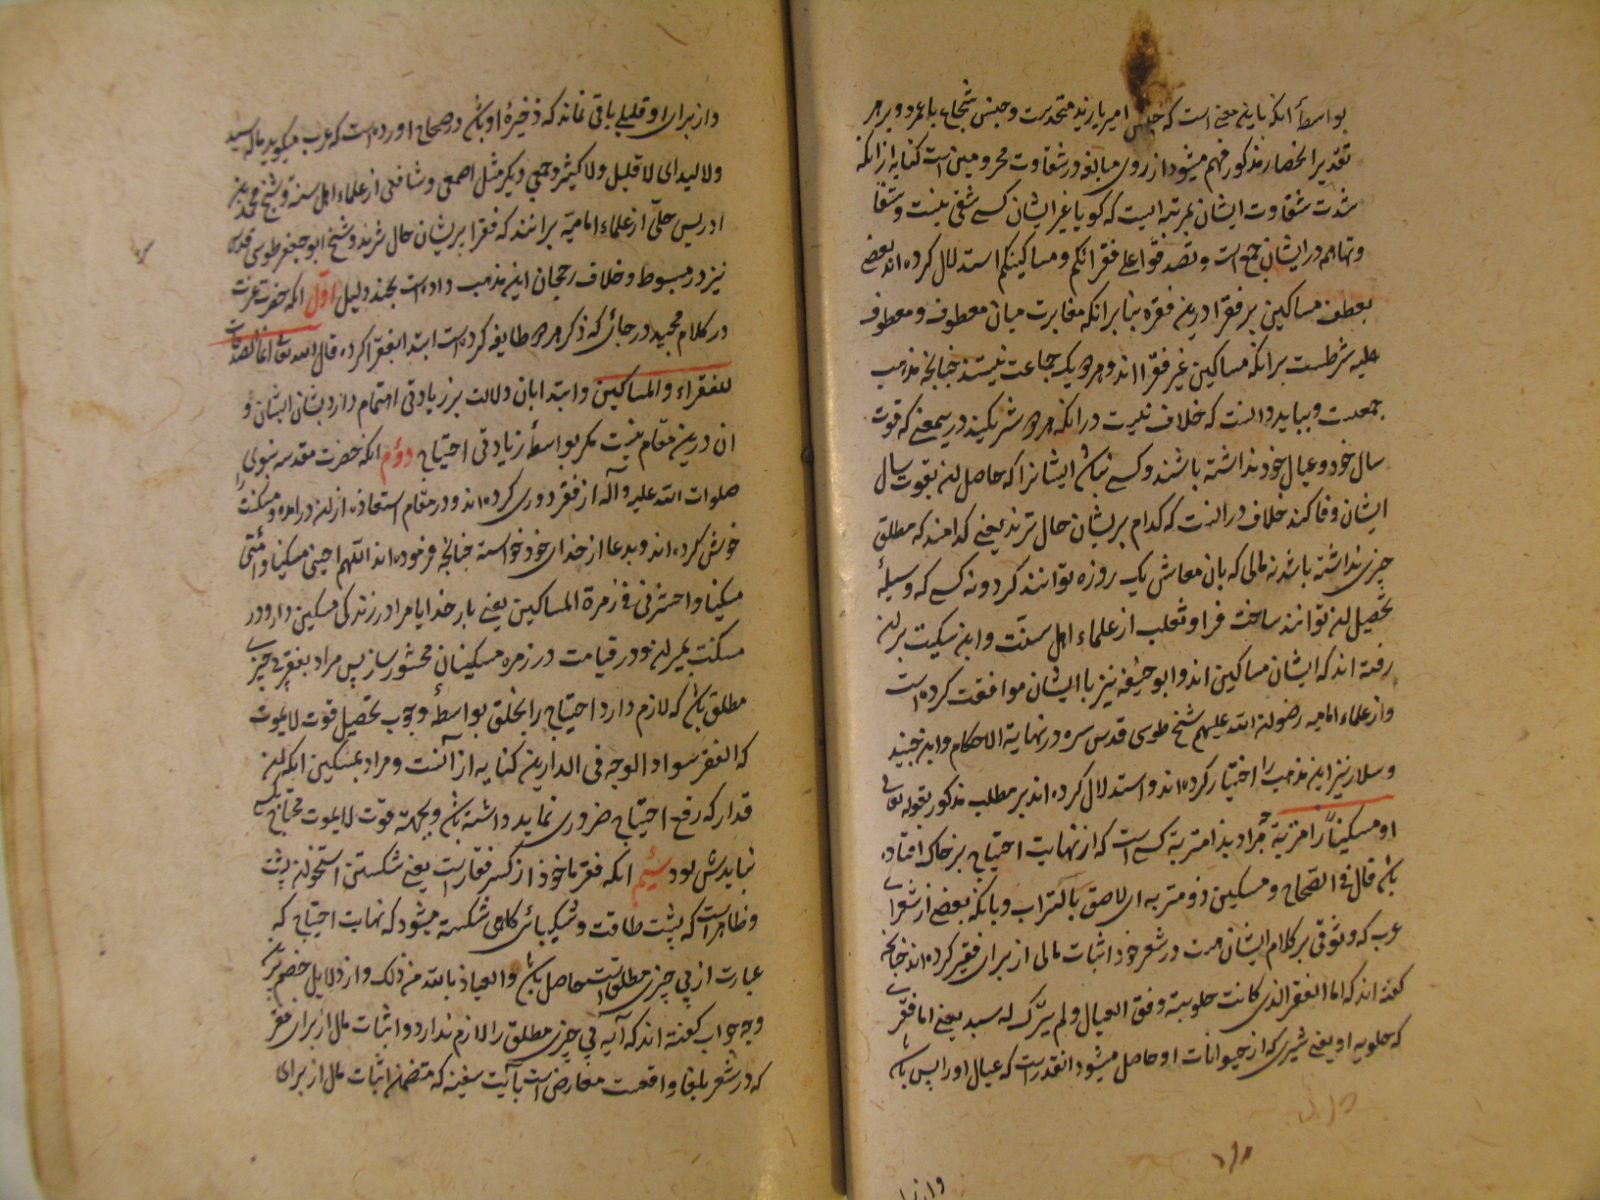 بواسطهٔ آنکه باین معنی است که جنس امیر با زید متحدست و جنس شجاع با عمرو و بر هر
تقدیر انحصار مذکور فهم میشود از روی مبالغه در شقاوت محرومین است کنایه از آنکه
شدت شقاوت ایشان بمرتبه ایست که گویا غیر ایشان کسی شقی نیست و شقا
وتها همه در ایشان جمع است و تصدقوا علی فقرائکم و مساکینکم استدلال کرده اند بعضی
بعطف مساکین بر فقرا درین فقره بنا بر آنکه مغایرت میان معطوف و معطوف
علیه شرطست بر آنکه مساکین غیر فقرا اند و هر دو یک جماعت نیستند چنانچه مذهب
جمعیست و بباید دانست که خلاف نیست در آنکه هر دو شریکند در یمعنی که قوت
سال خود و عیال خود نداشته باشند و کسبی نباشد ایشانرا که حاصل آن بقوت سال
ایشان وفا کند خلاف در آنست که کدام پریشان حال ترند یعنی کدامند که مطلق
چیزی نداشته باشد نه مالی که بآن معاش یک روزه توانند کرد و نه کسبی که وسیلهٔ
تحصیل آن توانند ساخت فرا و ثعلب از علماء اهل سنّت و ابن سکیت بر آن
رفته اند که ایشان مساکین اند و ابو حنیفه نیز با ایشان موافقت کرده است
و از علماء امامیه رضوان الله علیهم شیخ طوسی قدس سره در نهایة الاحکام و ابن جنید
و سلار نیز این مذهب را اختیار کرده اند و استدلال کرده اند بر مطلب مذکور بقوله تعالی
او مسکیناً ذا متربة چه مراد بذا متربة کسی است که از نهایت احتیاج بر خاک افتاده
باشد قال فی الصحاح و مسکین ذو متربه ای لاصق بالتراب و بآنکه بعضی از شعرای
عرب که وثوقی بر کلام ایشان هست در شعر خود اثبات مالی از برای فقیر کرده اند چنانچه
گفته اند که اما الفقیر الذی کانت حلوبته وفق العیال و لم یترک له سبد یعنی اما فقیری
که حلوبه او یعنی شیری که از حیوانات او حاصل میشود آنقدر است که عیال او را بس باشد
و از برا
و از برای او قلیلی باقی نماند که ذخیرهٔ او باشد در صحاح آورده است که عرب میگوید ماله سبد
ولا لبد ای لا قلیل ولا کثیر و جمعی دیگر مثل اصمعی و شافعی از علماء اهل سنة و شیخ محمد بن
ادریس حلّی از علماء امامیّه بر آنند که فقرا پریشان حال ترند و شیخ ابو جعفر طوسی قدس
نیز در مبسوط و خلاف رجحان این مذهب داده است بچند دلیل اوّل آنکه حضرت عزت
در کلام مجید در جائی که ذکر هر دو طایفه کرده است ابتدا بفقرا کرده قال الله تعالی انما الصدقات
للفقراء و المساکین و ابتدا بآن دلالت بر زیادتی اهتمام دارد بشان ایشان و
آن درین مقام نیست مگر بواسطهٔ زیادتی احتیاج دوّم آنکه حضرت مقدسه نبوی
صلوات الله علیه و آله از فقر دوری کرده اند و در مقام استعاذه از آن در آمده و مسکنت را
خوش کرده اند و بدعا از خدای خود خواسته چنانچه فرموده اند اللهم احینی مسکینا و امتنی
مسکینا و احشرنی فی زمرة المساکین یعنی بار خدایا مرا در زندگی مسکین دار و در
مسکنت بمیران و در قیامت در زمره مسکینان محشور ساز پس مراد بفقر بی چیزی
مطلق باشد که لازم دارد احتیاج را بخلق بواسطهٔ وجوب تحصیل قوت لا یموت
که الفقر سواد الوجه فی الدارین کنایه از آنست و مراد بمسکین آنکه آن
قدار که رفع احتیاج ضروری نماید داشته باشد و بجهة قوت لا یموت محتاج بکسی
نبایدش بود سیّم آنکه فقر ماخوذ از کسر فقار است یعنی شکستن استخوان پشت
و ظاهر است که پشت طاقت و شکیبائی گاهی شکسته میشود که نهایت احتیاج که
عبارت از بی چیزی مطلق است حاصل باشد و العیاذ بالله من ذلک و از دلایل خصم نیز
وجه جواب گفته اند که آیه بی چیزی مطلق را لازم ندارد و اثبات مال از برای فقیر
که در شعر بلغا واقعست معارض است بآیت سفینه که متضمن اثبات مال از برای